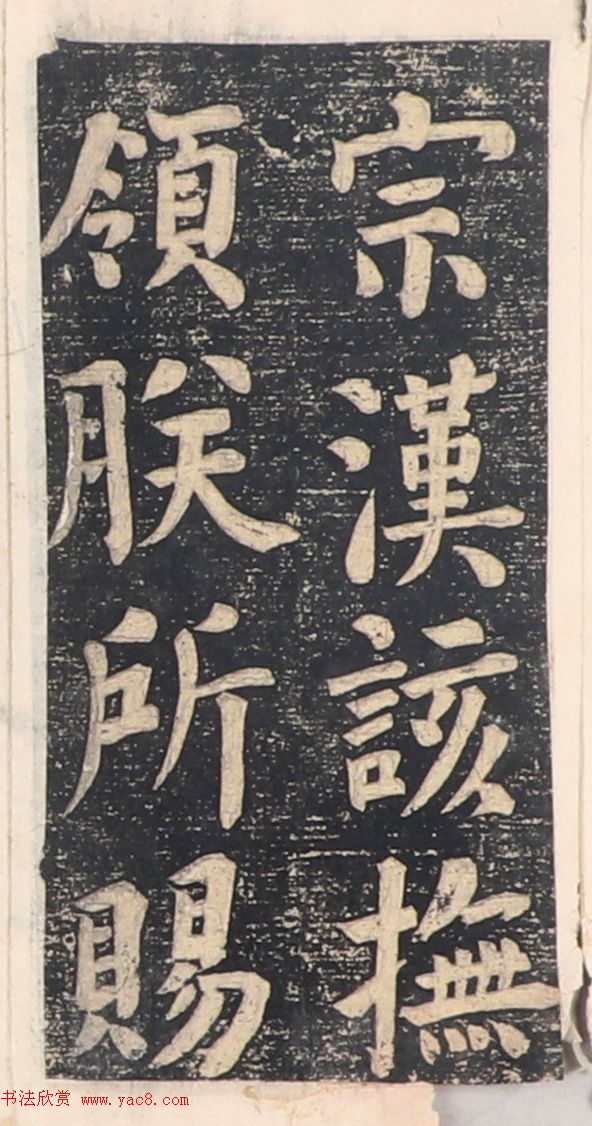 宗漢該撫
領朕所賜
书法欣赏 www.yac8.com